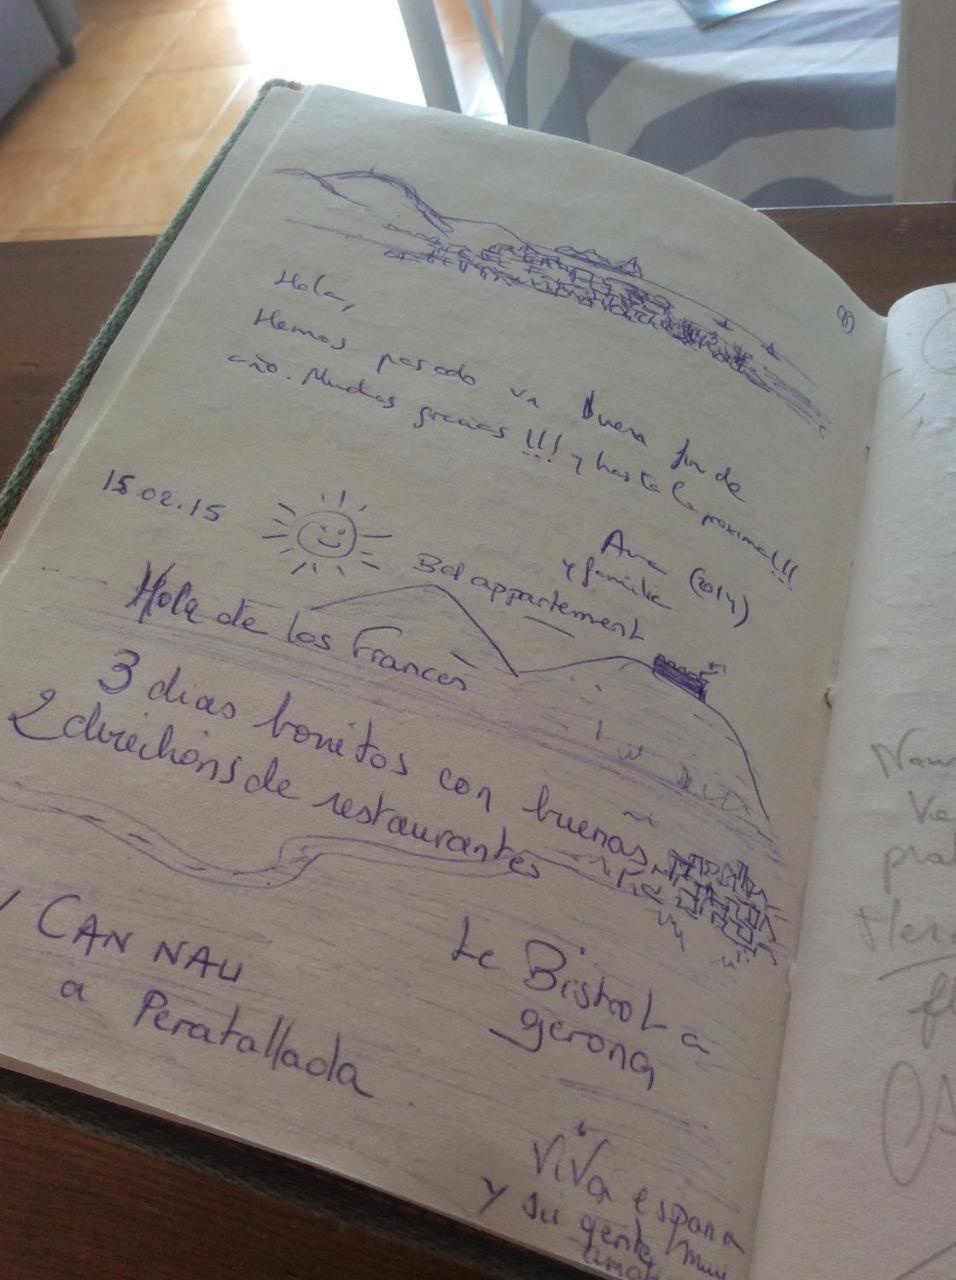 Hola,
Hemos pasado un buen fin de
año. Muchas gracias !!! y hasta la proxima!!!
Ana (2014)
y familia
15.02.15
Bel appartement
Hola de los Francès
3 dias bonitos con buenas
2 direchións de restaurantes
CAN NAU
a Peratallada
Le Bistrot a
gerona
Viva espana
y su gente muy